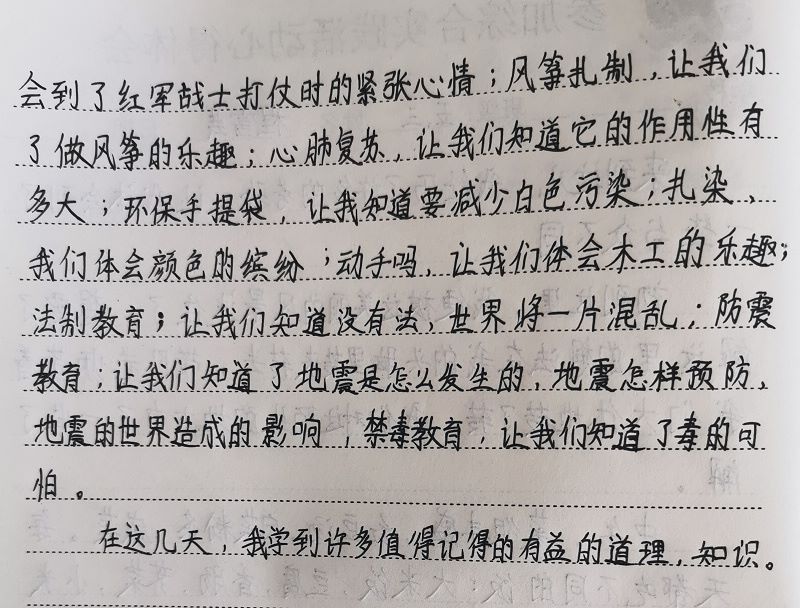 会到了红军战士打仗时的紧张心情；风筝扎制，让我们
了做风筝的乐趣；心肺复苏，让我们知道它的作用性有
多大；环保手提袋，让我知道要减少白色污染；扎染、
我们体会颜色的缤纷；动手吗，让我们体会木工的乐趣；
法制教育；让我们知道没有法，世界将一片混乱；防震
教育；让我们知道了地震是怎么发生的，地震怎样预防，
地震的世界造成的影响，禁毒教育，让我们知道了毒的可
怕。
在这几天，我学到许多值得记得的有益的道理，知识。